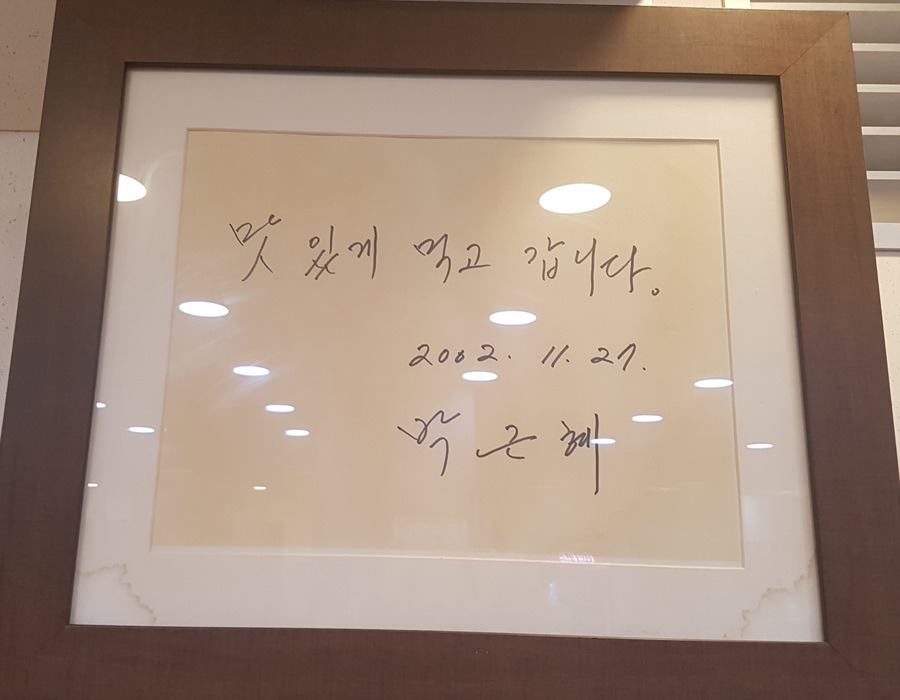 맛있게 먹고 갑니다.
2002. 11. 27.
박근혜